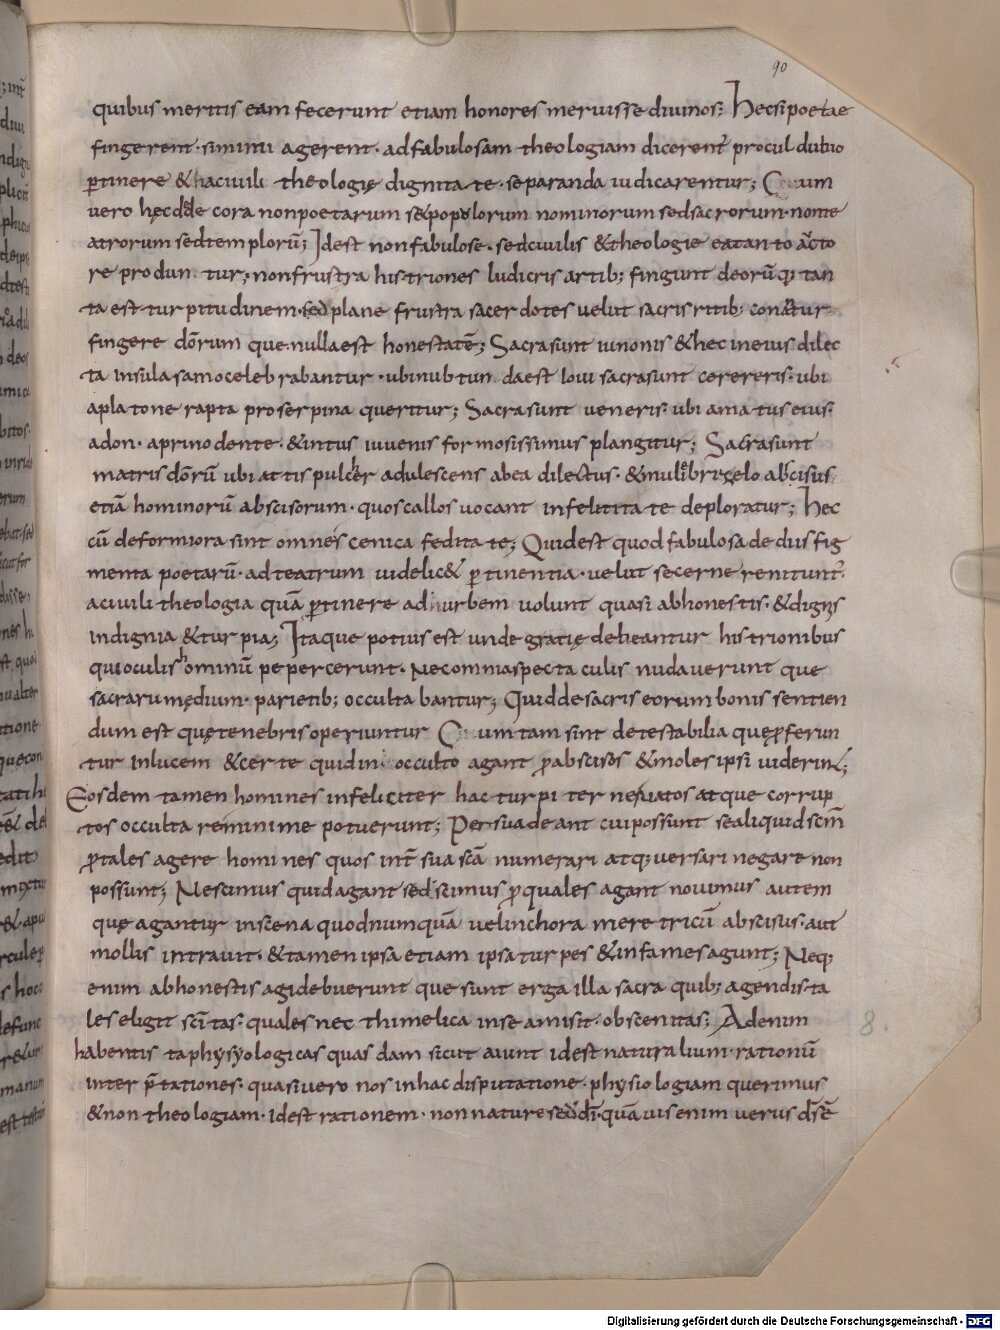 90
quibus meritis eam fecerunt etiam honores meruisse diuinos; Hec si poetae
fingerent · si mimi agerent · ad fabulosam theologiam dicerent̃ procul dubio
ꝑtinere & ha ciuili theologię dignitate · separanda iudicarentur; Cum
uero hęc dedecora non poetarum sed populorum non mimorum sed sacrorum · non te
atrorum sed templorũ; Id est non fabulose · sed ciuilis & theologie eatanto aucto
re produntur; non frustra histriones ludicris artib; fingunt deorũ q; tan
ta est turpitudinem · sed plane frustra sacerdotes uelut sacris ritib; conantur
fingere dõrum que nulla est honestatẽ; Sacra sunt iunonis & hec in eius dilec
ta insula samo celebrabantur · ubi nubtum daest ioui sacra sunt cerereris · ubi
a platone rapta proserpina queritur; Sacra sunt ueneris · ubi amatus eius ·
adon · aprino dente · & intus iuuenis formosissimus plangitur; Sacra sunt
matris dõrũ ubi attis pulcher adulescens ab ea dilectus · & mulibri zelo abscisus
etiã hominorũ abscisorum · quos callos uocant infelitate deploratur; Hec
cũ deformiora sint omnes cenica feditate; Quid est quod fabulosa de diis fig
menta poetarũ · ad teatrum uidelic& ꝑtinentia · uelut secernere nitunt̃
a ciuili theologia quã ꝑtinere ad urbem uolunt quasi ab honestis · & dignis
indignia & turpia; Itaque potius est unde gratię debeantur histrionibus
qui oculis hominũ pepercerunt · nec omnia spectaculis nudauerunt que
sacrarum ędium · parietib; occultabantur; Quid de sacris eorum bonis sentien
dum est quę tenebris operiuntur Cum tam sint detestabilia quę ꝓferun
tur in lucem & certe quid in occulto agant ꝑ abscisos & moles ipsi uiderint;
Eosdem tamen homines infeliciter hac turpiter neruatos atque corrup
tos occultare minime potuerunt; Persuadeant cui possunt se aliquid scm̃
ꝑ tales agere homines quos int̃ sua scã numerari atq; uersari negare non
possunt; Nescimus quid agant sed scimus ꝑ quales agant nouimus autem
que agantur in scena quo dnumquã uel in chora meretricũ abscisus · aut
mollis intrauit · & tamen ipsa etiam ipsa turpes & infames agunt; Neq;
enim ab honestis agi debuerunt que sunt ergo illa sacra quib; agendis ta
les eligit scĩtas · quales nec thimelica in se amisit · obscenitas; Ad enim
habentis ta physyologicas quasdam sicut aiunt id est naturalium · rationũ
inter p̃tationes · quasi uero nos in hac disputatione · physiologiam querimus
& non theologiam · id est rationem · non nature sed dĩ · quãuis enim uerus ds̃ ẽ
8.
Digitalisierung gefördert durch die Deutsche Forschungsgemeinschaft - DFG